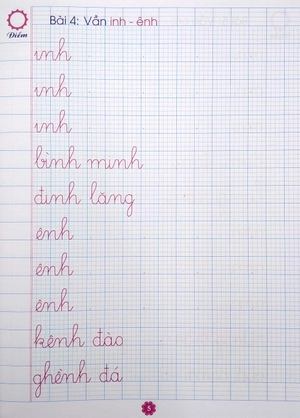 Bài 4: Vần inh - ênh
Điểm
inh
inh
inh
bình minh
đinh lăng
ênh
ênh
ênh
kênh đào
ghềnh đá
5